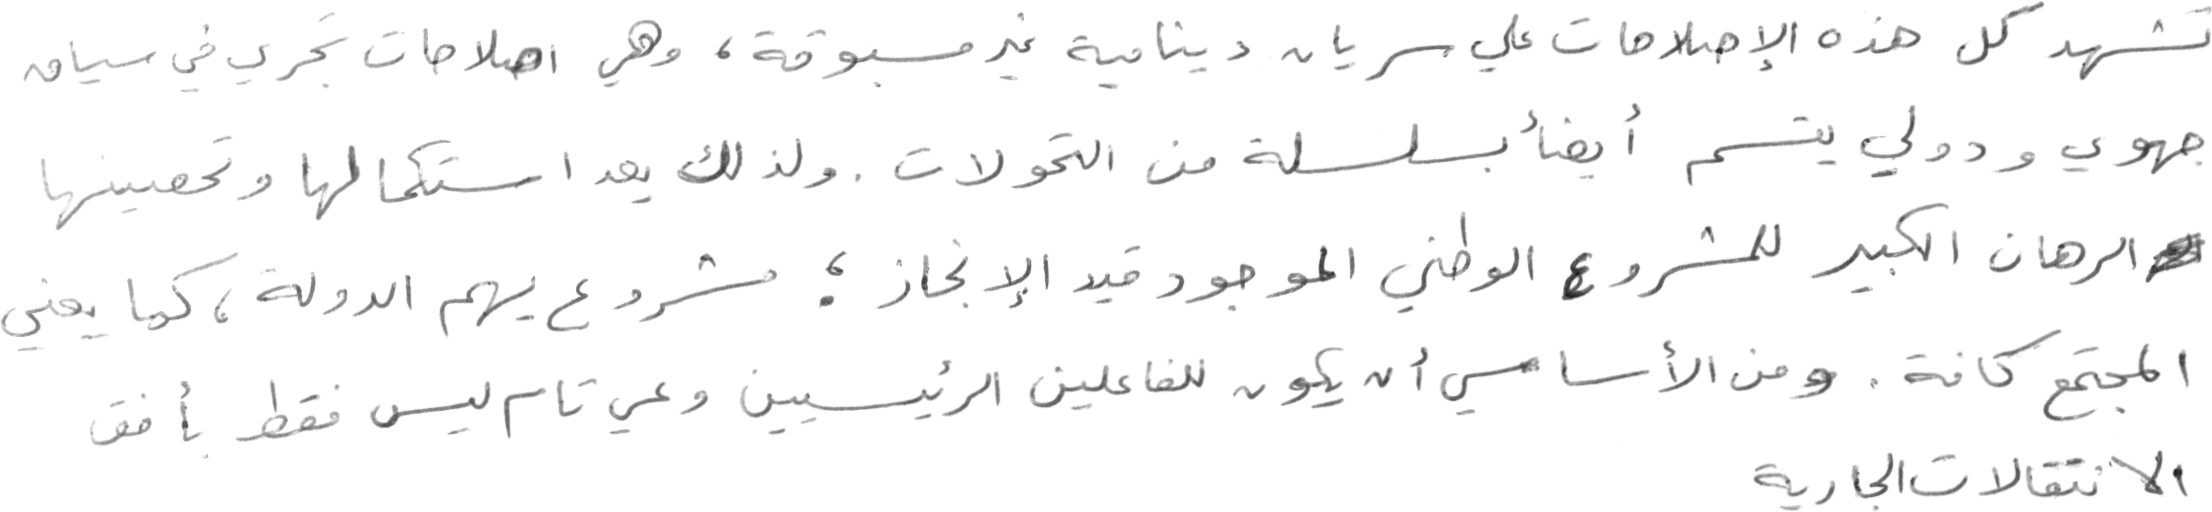 تشهد كل هذه الإصلاحات على سريان دينامية غير مسبوقة، وهي اصلاحات تجري في سياق
جهوي ودولي يتسم أيضأ بسلسلة من التحولات. ولذلك يعد استكمالها وتحصينها
الرهان الكبير للمشروع الوطني الموجود قيد الإنجاز؛ مشروع يهم الدولة، كما يعني
المجتمع كافة. ومن الأساسي أن يكون للفاعلين الرئيسيين وعي تام ليس فقط بأفق
الانتقالات الجارية